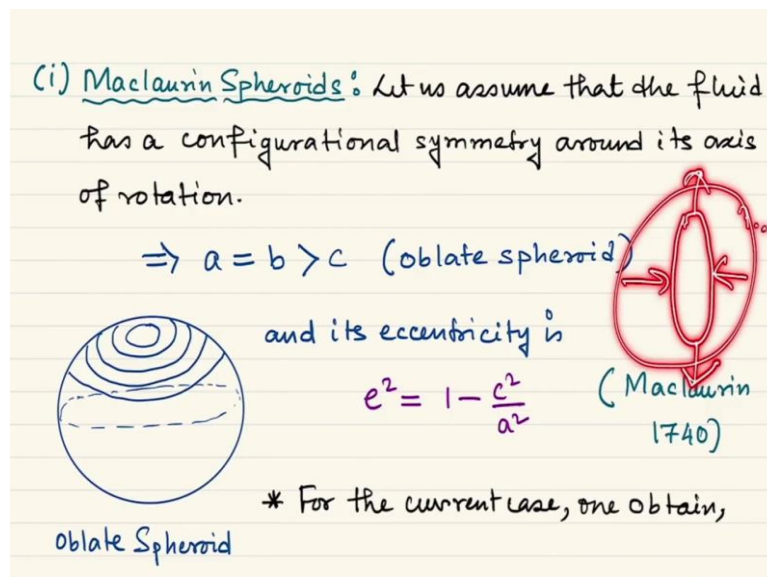 (i) Maclaurin Spheroids: Let us assume that the fluid
has a configurational symmetry around its axis
of rotation.
⇒ a = b > c (oblate spheroid)
and its eccentricity is
e² = 1 - c²/a²
(Maclaurin
1740)
* For the current case, one obtain,
oblate Spheroid